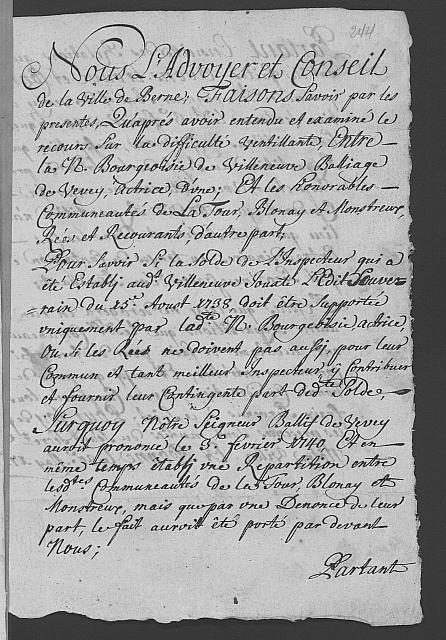 244
Nous L'Advoyer et Conseil
de la Ville de Berne; Faisons Savoir par les
presentes, Qu'aprés avoir entendu et examiné le
recours Sur la difficulté Ventillante, Entre
la N. Bourgeoisie de Villeneuve Balliage
de Vevey, actrice d'vne; Et les honorables
Communeautés de La Tour, Blonay et Monstreux,
Rées et Recourants, d'autre part;
Pour Savoir Si la Solde de L'Inspecteur qui a
été Establi aud.t Villeneuve Jouxte L'Edit Souve-
-rain du 15.e Aoust 1738 doit être Supportée
vniquement par lad.te N. Bourgeoisie actrice,
Ou Si les Rées ne doivent pas aussi, pour leur
Commun et tant meilleur Inspecteur, ÿ Contribuer
et fournir leur Contingente part de d.te Solde,
Surquoy Notre Seigneur Ballif de Vevey
auroit prononcé le 3.e fevrier 1740, Et en
même temps établi vne Repartition entre
lesd.tes Communeautés de la Tour, Blonay et
Monstreux, mais que par vne Denonce de leur
part, le fait auroit été porté par devant
Nous;
Partant